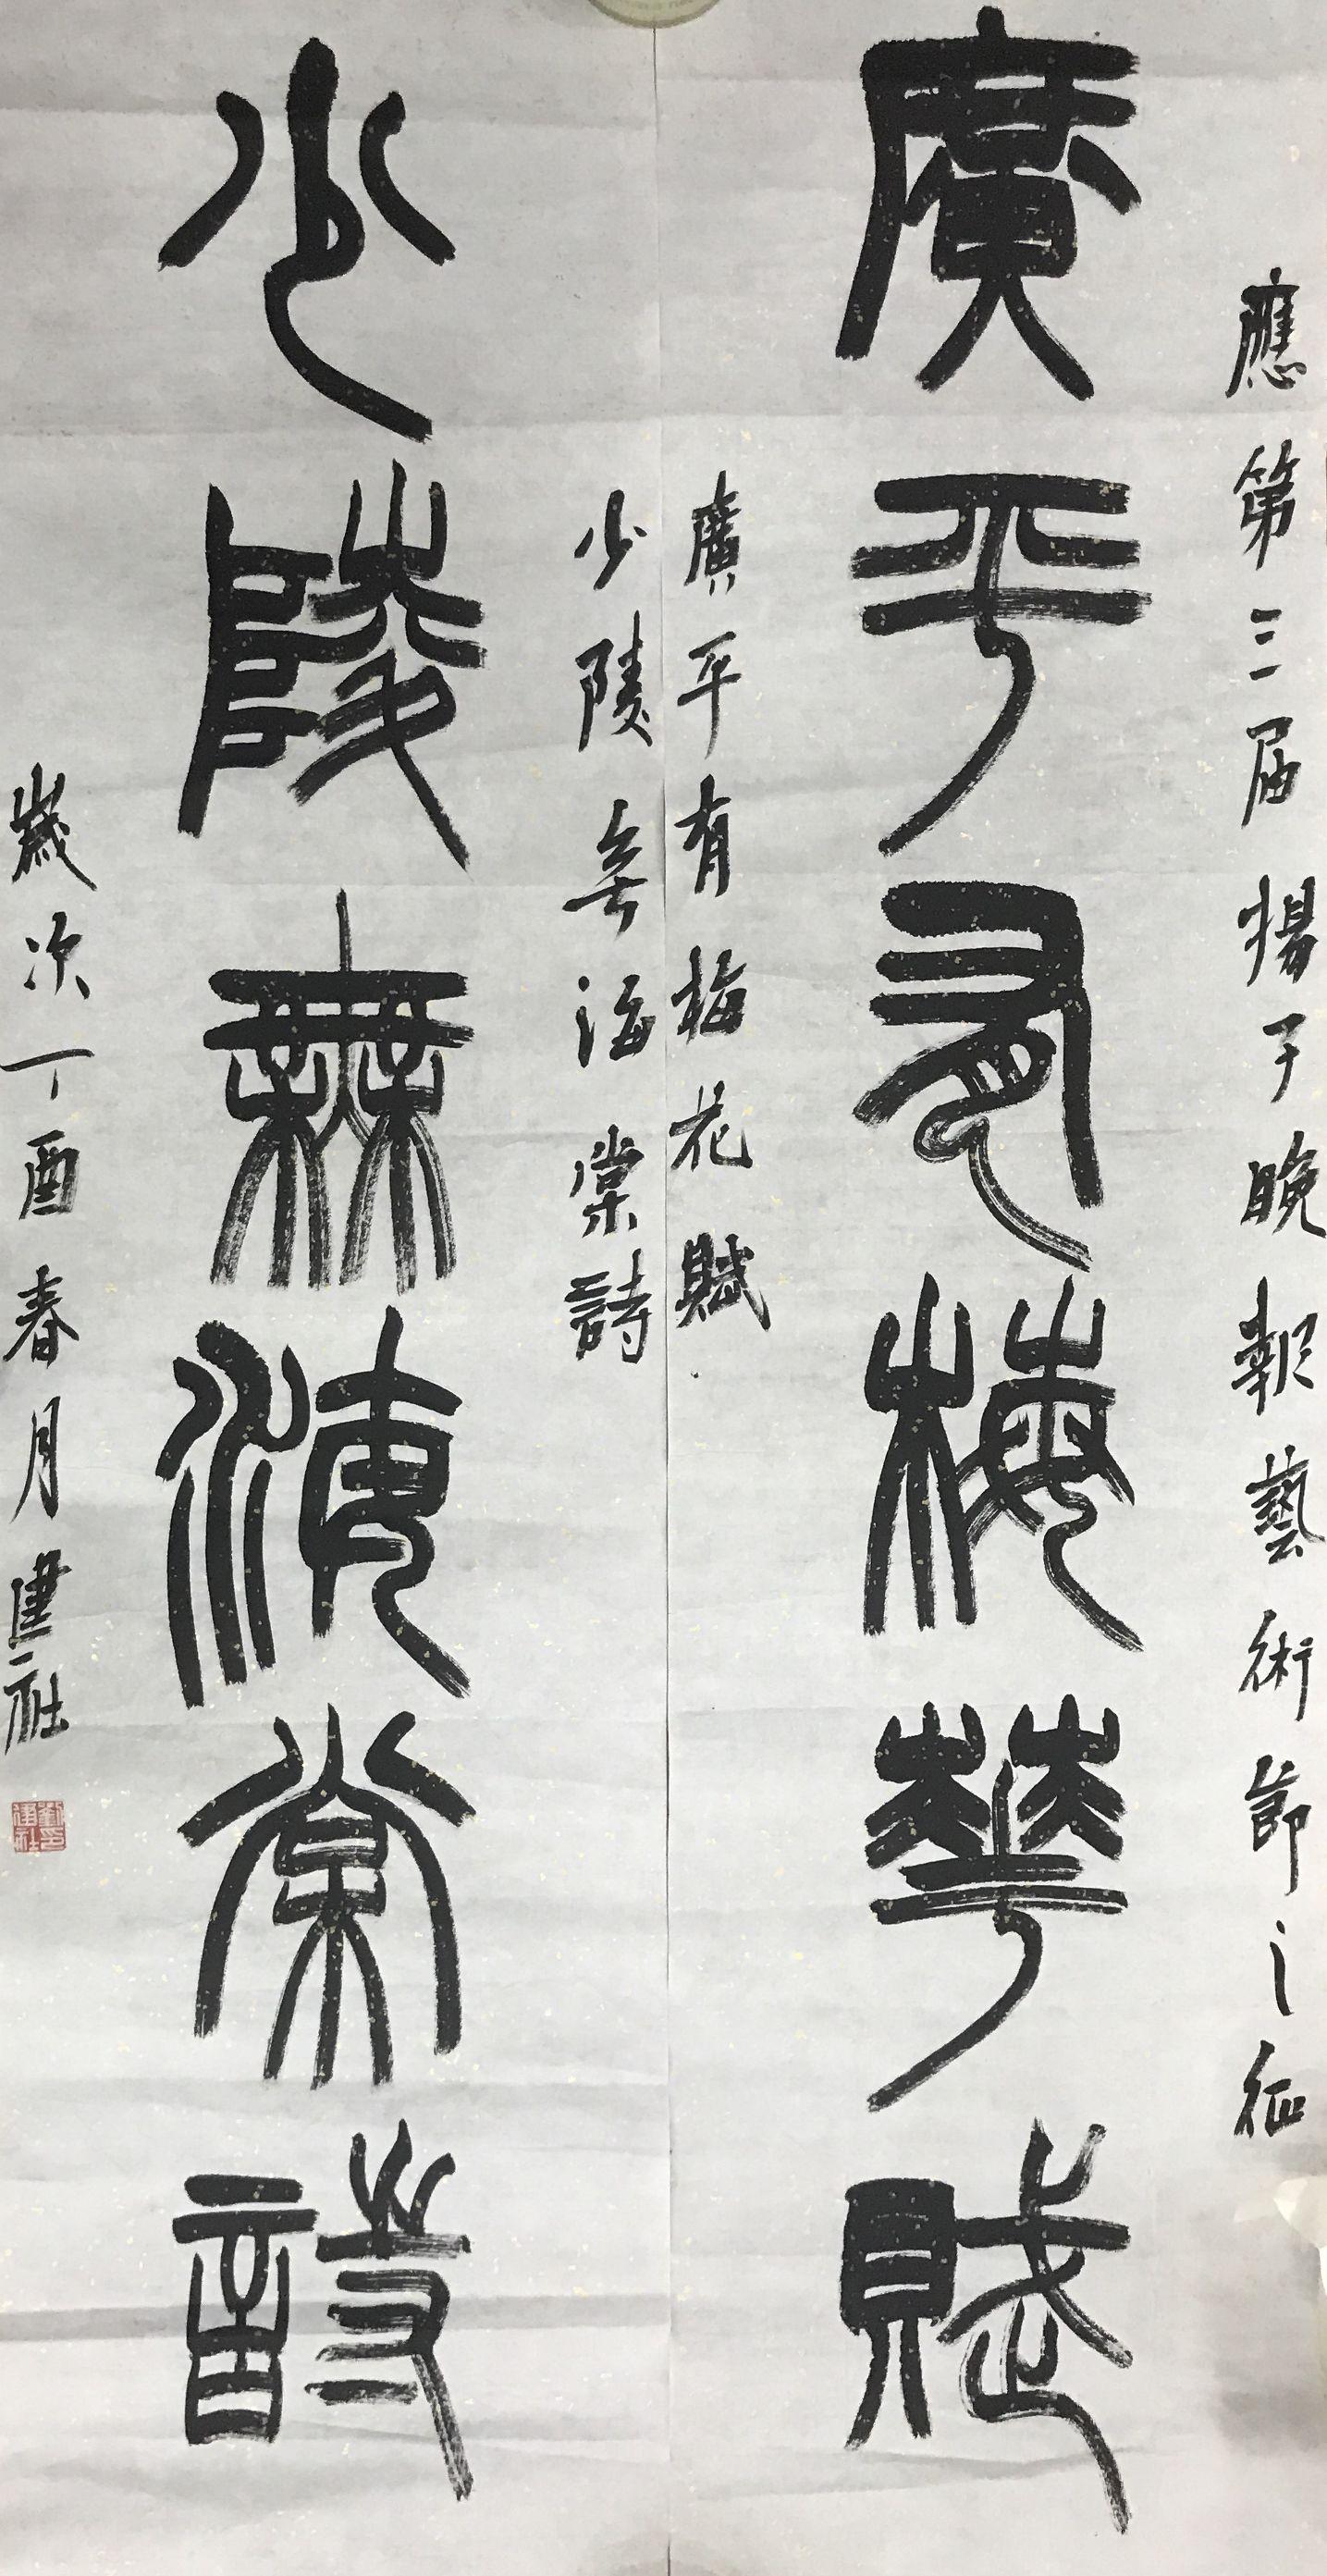 應第三届揚子晚報藝術節之征
廣平有梅華賦
廣平有梅花賦
少陵无海棠詩
少陵無海棠詩
歲次丁酉春月建社
劉建社印